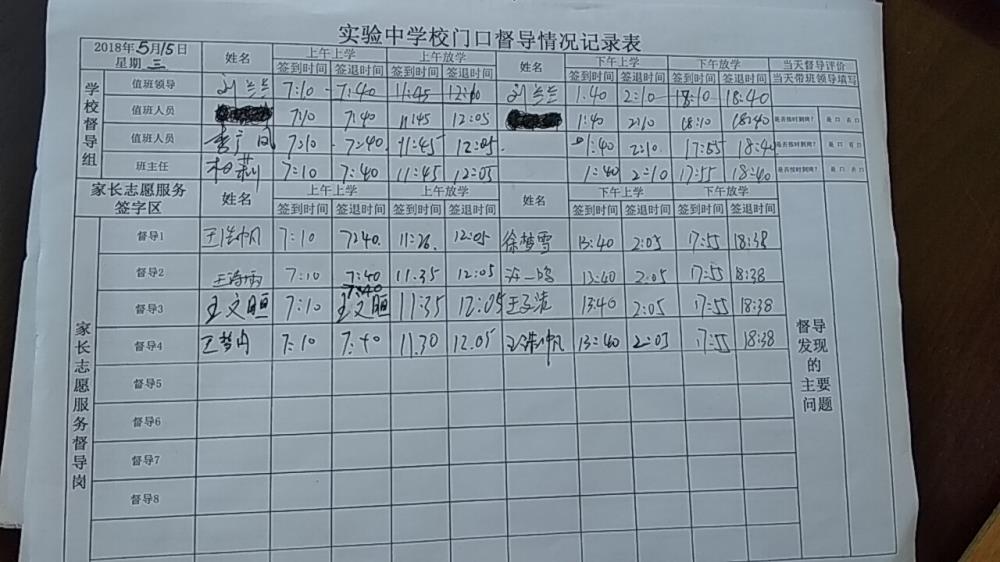 实验中学校门口督导情况记录表
2018年5月15日
星期 三
姓名 上午上学 上午放学 姓名 下午上学 下午放学 当天督导评价
签到时间 签退时间 签到时间 签退时间 签到时间 签退时间 签到时间 签退时间 当天带班领导填写
学校督导组
值班领导 刘兰兰 7:10 7:40 11:45 刘兰兰 1:40 2:10 18:10 18:40
值班人员 7:10 7:40 11:45 12:05 1:40 2:10 18:10 18:40 是否按时到岗? 是口 否口
值班人员 7:10 7:40 11:45 12:05 1:40 2:10 17:55 18:40 是否按时到岗? 是口 否口
班主任 7:10 7:40 11:45 12:05 1:40 2:10 17:55 18:40 是否按时到岗? 是口 否口
家长志愿服务
签字区
姓名 上午上学 上午放学 姓名 下午上学 下午放学
签到时间 签退时间 签到时间 签退时间 签到时间 签退时间 签到时间 签退时间
家长志愿服务督导岗
督导1 7:10 7:40 12:05 徐梦雪 13:40 2:05 17:55 18:38
督导2 7:10 7:40 11.35 12:05 13:40 2:05 17:55 18:38
督导3 7:10 11:35 12:05 13:40 2:05 17:55 18:38
督导4 7:10 7:40 11.30 12.05 13:40 2:05 17:55 18:38
督导5
督导6
督导7
督导8
督导
发现
的
主要
问题